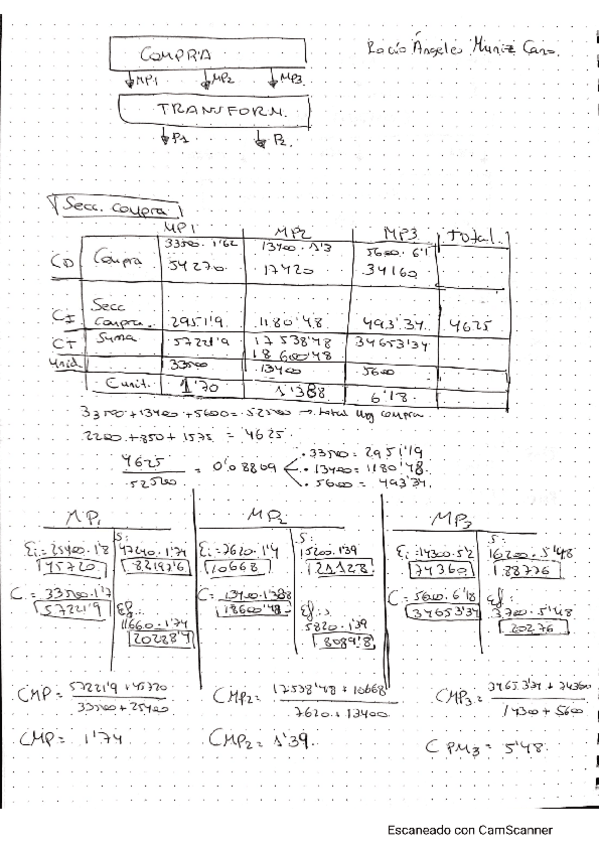 Rocío Ángeles Muñiz Caro.
COMPRA
MP1 MP2 MP3
TRANSFORM.
P1 P2
Secc. compra
MP1 MP2 MP3 Total
33500 · 1'62 13400 · 1'3 5600 · 6'1
CD Compra 54270 17420 34160
CI Secc compra 2951'9 1180'48 493'34 4625
CT Suma 57221'9 17538'48 34653'34
18600'48
Unid. 33500 13400 5600
C unit. 1'70 1'388 6'18
33500 + 13400 + 5600 = 52500 → total Mg compra
2200 + 850 + 1575 = 4625
4625 / 52500 = 0'08809
· 33500 = 2951'19
· 13400 = 1180'48
· 5600 = 493'34
MP1 MP2 MP3
Ei = 25400 · 1'8 S: 47240 · 1'74 Ei = 7620 · 1'4 S: 15200 · 1'39 Ei = 14300 · 5'2 S: 16200 · 5'48
45720 82197'6 10668 21128 74360 88776
C = 33500 · 1'7 Ef: C = 13400 · 1'388 Ef: C = 5600 · 6'18 Ef:
57221'9 11660 · 1'74 18600'48 5820 · 1'39 34653'34 3700 · 5'48
20288'4 8089'8 20276
CMP = 57221'9 + 45720 / 33500 + 25400
CMP2 = 17538'48 + 10668 / 7620 + 13400
CMP3 = 34653'34 + 74360 / 14300 + 5600
CMP = 1'74 CMP2 = 1'39. CPM3 = 5'48.
Escaneado con CamScanner